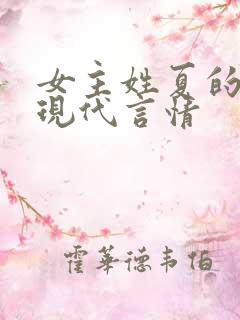 女主姓夏的
現代言情
霍華德韦伯